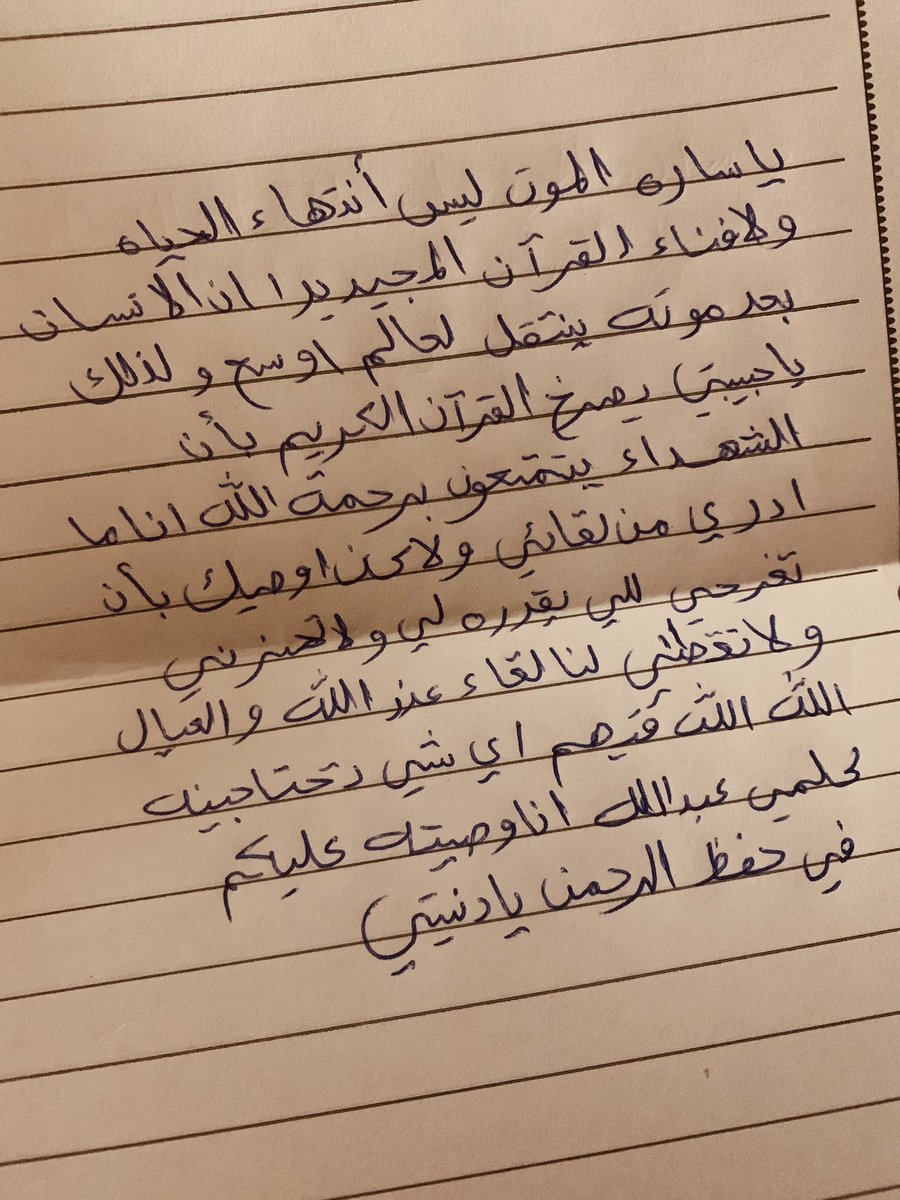 ياساره الموت ليس أنتهاء الحياه
ولافناء القرآن المجيد يرا ان الانسان
بعد موته ينتقل لعالم اوسع ولذلك
ياحبيبتي يصرخ القرآن الكريم بأن
الشهداء يتمتعون برحمة الله انا ما
ادري من لقائي ولاكن اوصيك بأن
تفرحي للي يقدره لي ولا تحزني
ولا تقطني لنا لقاء عند الله والعيال
الله الله فيهم اي شي تحتاجينه
كلمي عبدالله انا وصيته عليكم
في حفظ الرحمن يادنيتي